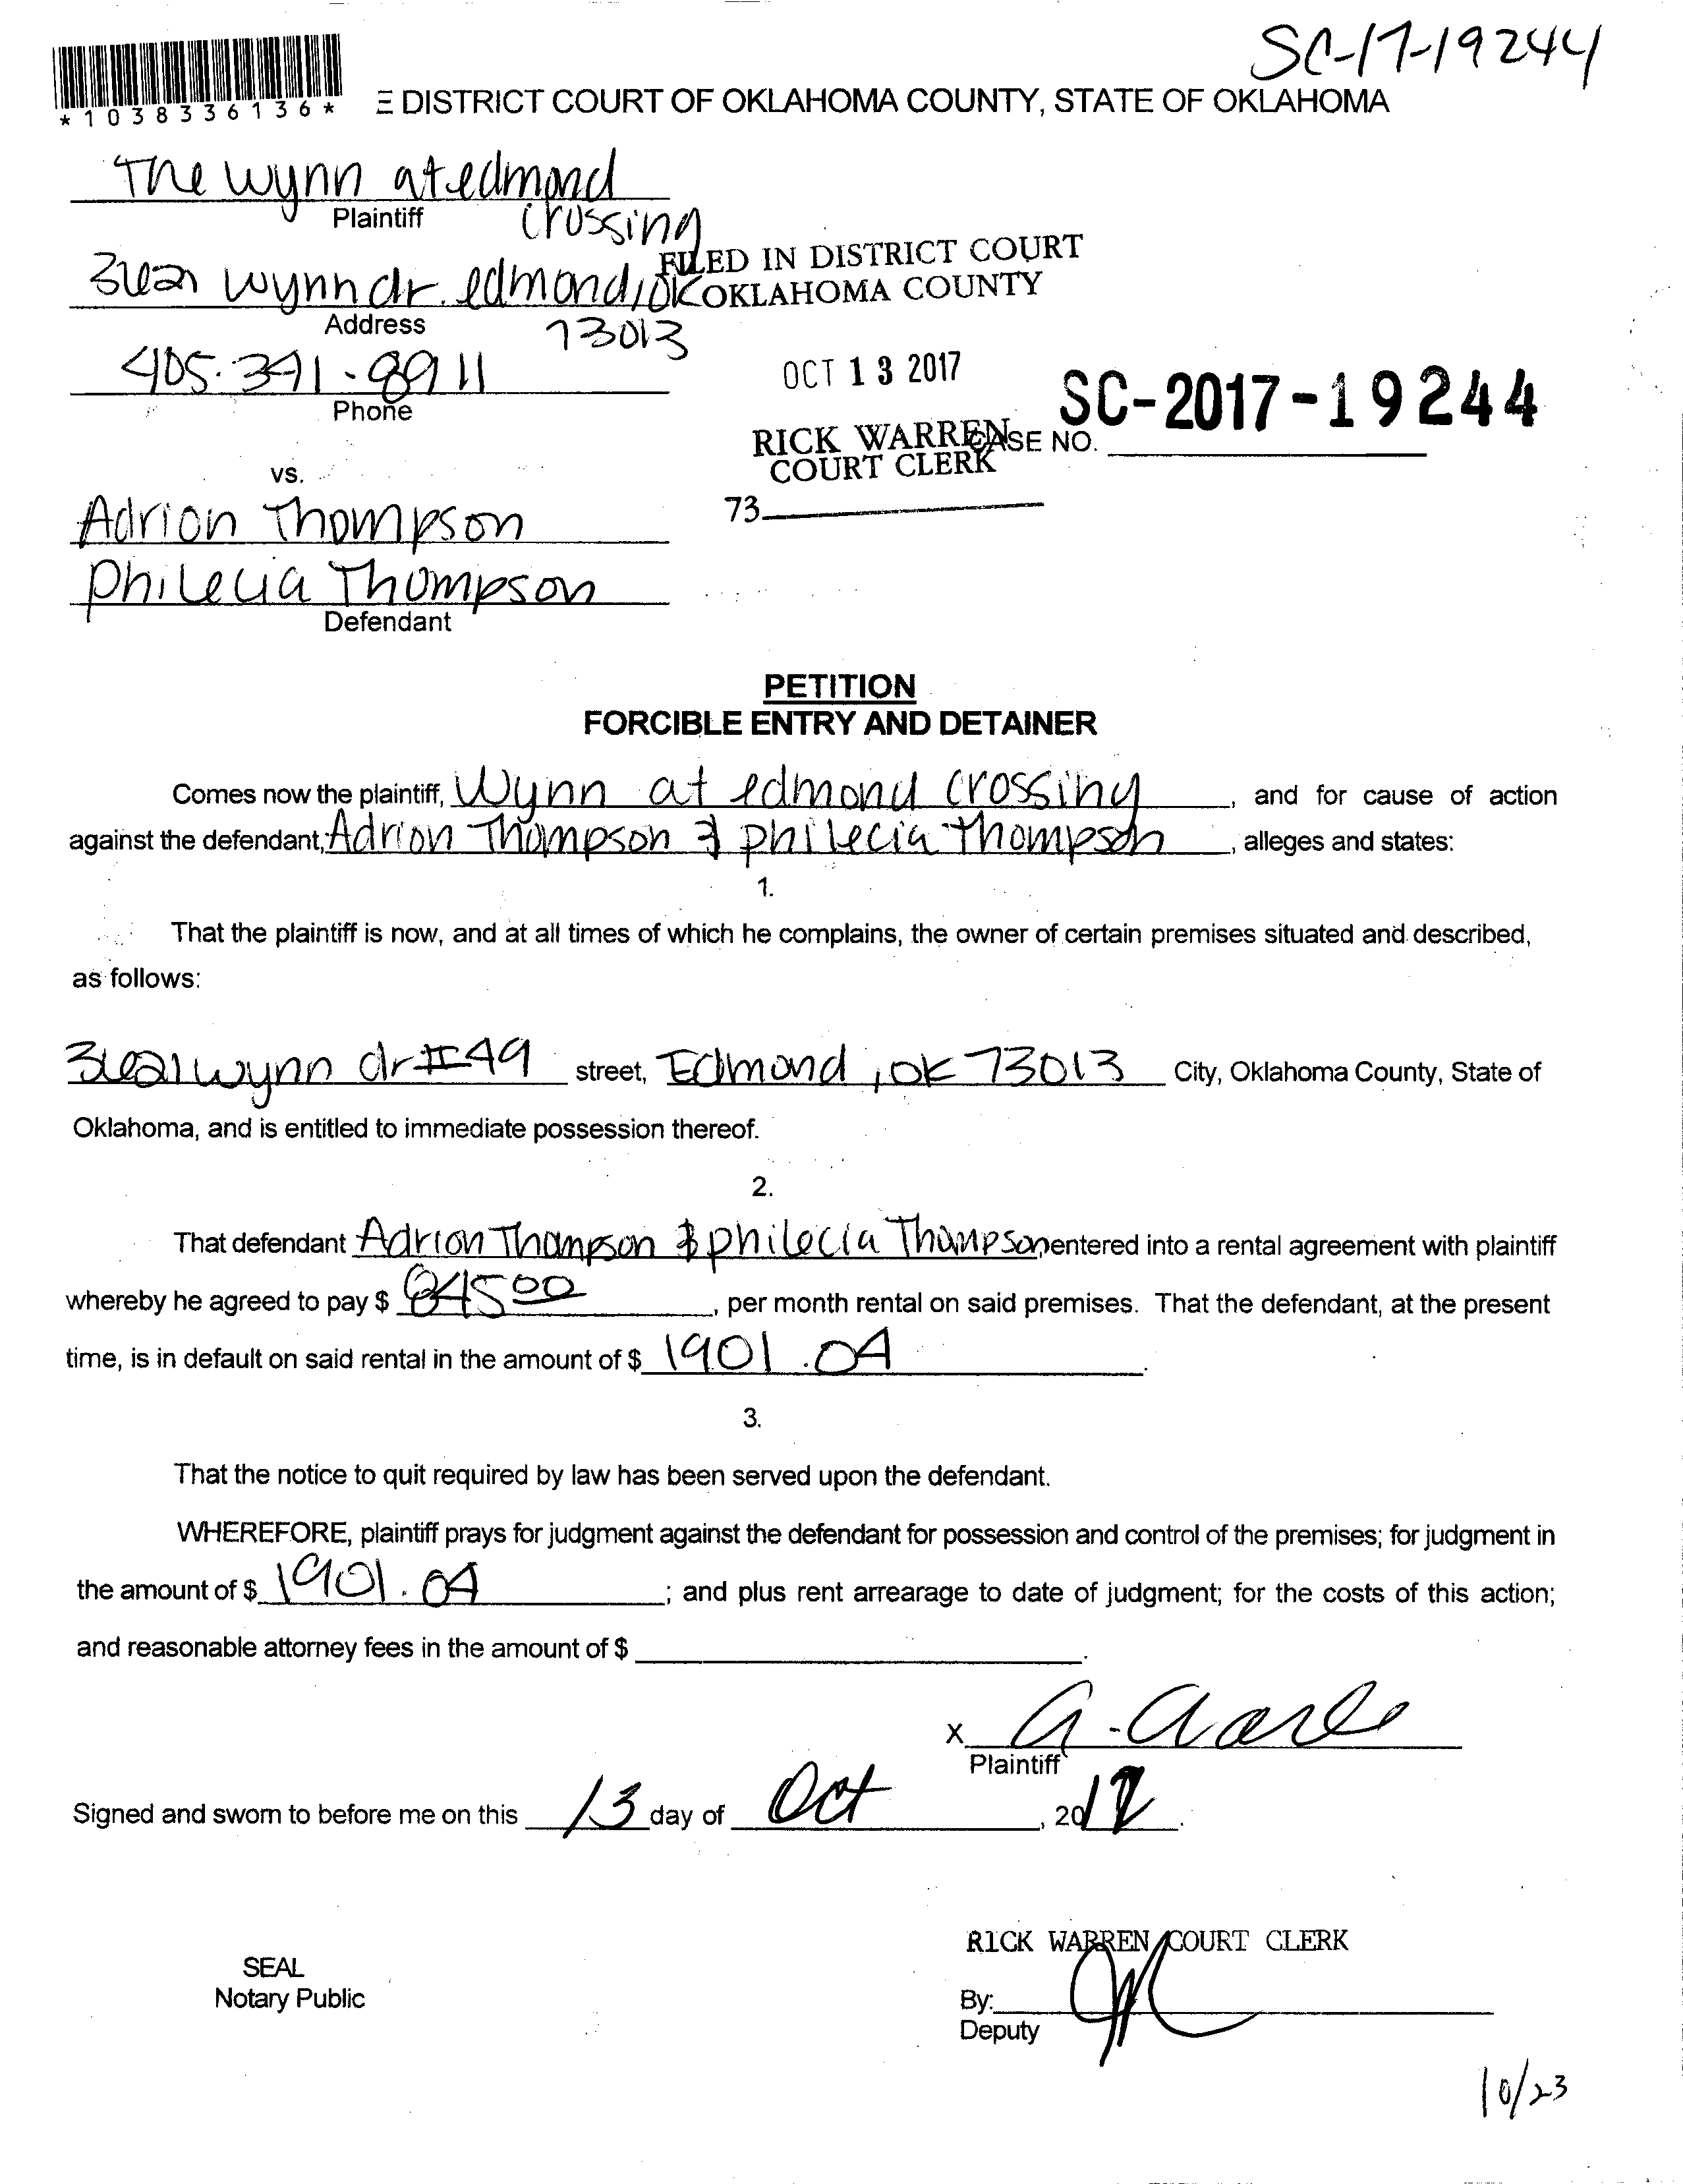 SC-17-19244
*1038336136*
E DISTRICT COURT OF OKLAHOMA COUNTY, STATE OF OKLAHOMA
The wynn at edmond
Plaintiff
crossing
FILED IN DISTRICT COURT
OKLAHOMA COUNTY
wynn dr. edmond, OK
Address
73013
405.391.8911
Phone
OCT 13 2017
SC-2017-19244
RICK WARREN
COURT CLERK
CASE NO.
vs.
73
Adrion Thompson
Philecia Thompson
Defendant
PETITION
FORCIBLE ENTRY AND DETAINER
Comes now the plaintiff, Wynn at edmond crossing, and for cause of action
against the defendant, Adrion Thompson & philecia Thompson, alleges and states:
1.
That the plaintiff is now, and at all times of which he complains, the owner of certain premises situated and described,
as follows:
wynn dr #49 street, Edmond, OK 73013 City, Oklahoma County, State of
Oklahoma, and is entitled to immediate possession thereof.
2.
That defendant Adrion Thompson & philecia Thompson entered into a rental agreement with plaintiff
whereby he agreed to pay $ 845 00, per month rental on said premises. That the defendant, at the present
time, is in default on said rental in the amount of $ 1901.04.
3.
That the notice to quit required by law has been served upon the defendant.
WHEREFORE, plaintiff prays for judgment against the defendant for possession and control of the premises; for judgment in
the amount of $ 1901.04; and plus rent arrearage to date of judgment; for the costs of this action;
and reasonable attorney fees in the amount of $ .
X
Plaintiff
Signed and sworn to before me on this 13 day of Oct, 2017.
RICK WARREN COURT CLERK
SEAL
Notary Public
By:
Deputy
10/23